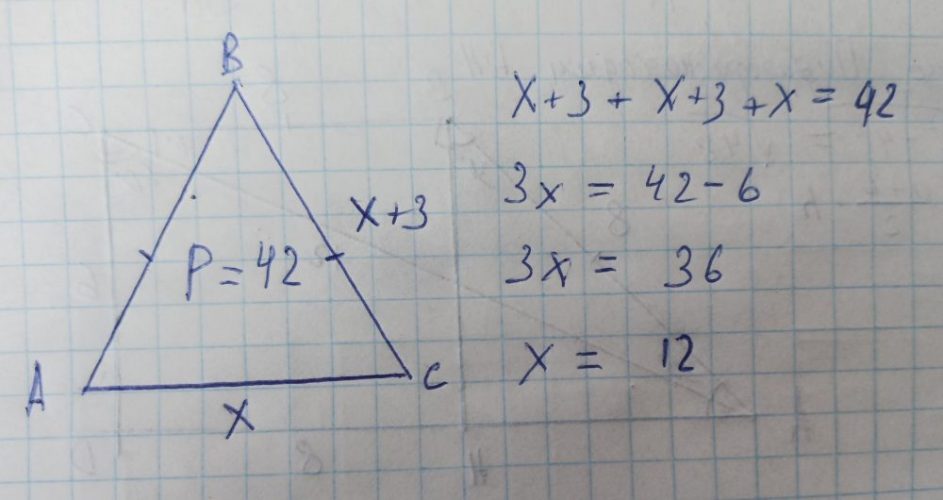 B
X+3 + X+3 + x = 42
3x = 42 - 6
X+3
P = 42
3x = 36
x = 12
A
C
X